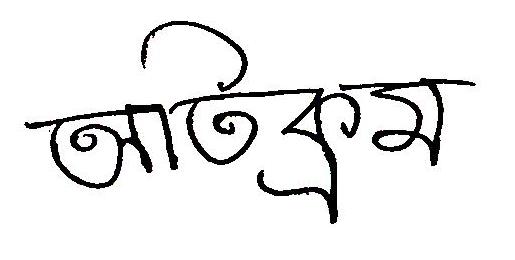 অতিক্রম